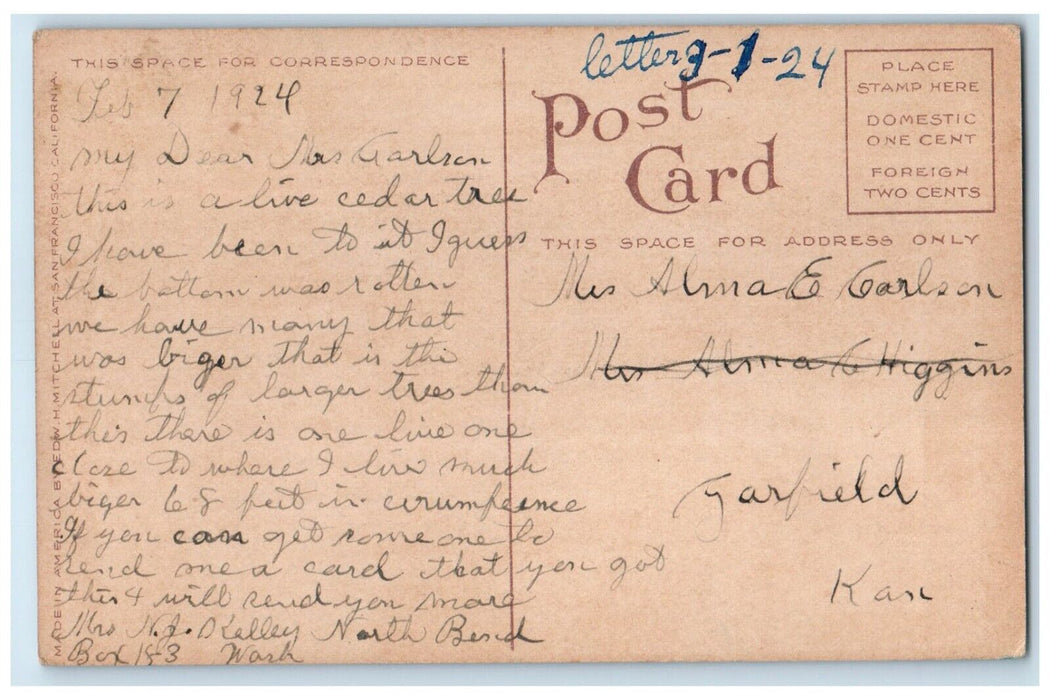 THIS SPACE FOR CORRESPONDENCE
Feb 7 1924
My Dear Mrs Carlson
this is a live cedar tree
I have been to it I guess
the bottom was rotten
we have many that
was biger that is the
stumps of larger trees than
this thare is one live one
close to where I live much
biger 68 feet in cirumfrence
If you can get some one to
send me a card that you got
this & will send you more
Mrs H.J. O Kelley North Bend
Box 183 Wash
MADE IN AMERICA BY EDW. H. MITCHELL AT SAN FRANCISCO CALIFORNIA.
letter 3-1-24
Post
Card
PLACE
STAMP HERE
DOMESTIC
ONE CENT
FOREIGN
TWO CENTS
THIS SPACE FOR ADDRESS ONLY
Mrs Alma E Carlson
Mrs Alma E Higgins
Garfield
Kan